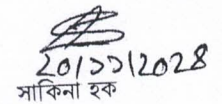 ২০/১১/২০২৪
সাকিনা হক